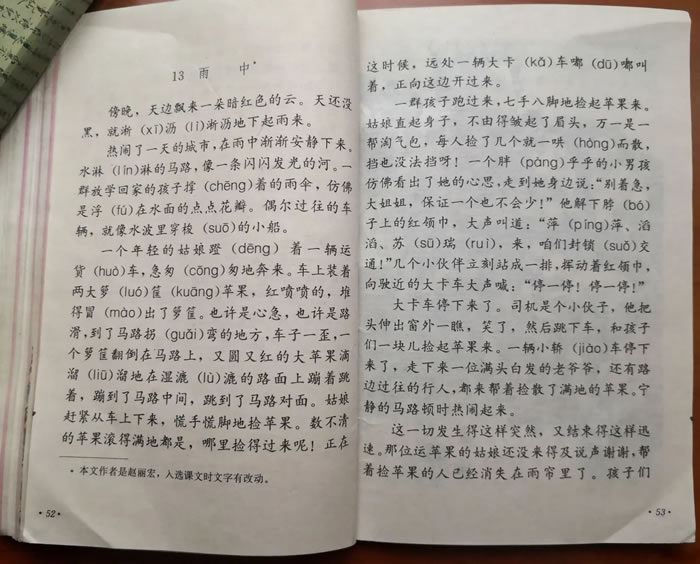 13 雨 中*
傍晚，天边飘来一朵暗红色的云。天还没
黑，就淅（xī）沥（lì）淅沥地下起雨来。
热闹了一天的城市，在雨中渐渐安静下来。
水淋（lín）淋的马路，像一条闪闪发光的河。一
群放学回家的孩子撑（chēng）着的雨伞，仿佛
是浮（fú）在水面的点点花瓣。偶尔过往的车
辆，就像水波里穿梭（suō）的小船。
一个年轻的姑娘蹬（dēng）着一辆运
货（huò）车，急匆（cōng）匆地奔来。车上装着
两大箩（luó）筐（kuāng）苹果，红喷喷的，堆
得冒（mào）出了箩筐。也许是心急，也许是路
滑，到了马路拐（guǎi）弯的地方，车子一歪，一
个箩筐翻倒在马路上，又圆又红的大苹果滴
溜（liū）溜地在湿漉（lù）漉的路面上蹦着跳
着，蹦到了马路中间，跳到了马路对面。姑娘
赶紧从车上下来，慌手慌脚地捡苹果。数不清
的苹果滚得满地都是，哪里捡得过来呢！正在
* 本文作者是赵丽宏，入选课文时文字有改动。
· 52 ·
这时候，远处一辆大卡（kǎ）车嘟（dū）嘟叫
着，正向这边开过来。
一群孩子跑过来，七手八脚地捡起苹果来。
姑娘直起身子，不由得皱起了眉头，万一是一
帮淘气包，每人捡了几个就一哄（hòng）而散，
挡也没法挡呀！一个胖（pàng）乎乎的小男孩
仿佛看出了她的心思，走到她身边说：“别着急，
大姐姐，保证一个也不会少！”他解下脖（bó）
子上的红领巾，大声叫道：“萍（píng）萍、滔
滔、苏（sū）瑞（ruì），来，咱们封锁（suǒ）交
通！”几个小伙伴立刻站成一排，挥动着红领巾，
向驶近的大卡车大声喊：“停一停！停一停！”
大卡车停下来了。司机是个小伙子，他把
头伸出窗外一瞧，笑了，然后跳下车，和孩子
们一块儿捡起苹果来。一辆小轿（jiào）车停下
来了，走下来一位满头白发的老爷爷，还有路
边过往的行人，都来帮着捡散了满地的苹果。宁
静的马路顿时热闹起来。
这一切发生得这样突然，又结束得这样迅
速。那位运苹果的姑娘还没来得及说声谢谢，帮
着捡苹果的人已经消失在雨帘里了。孩子们
· 53 ·